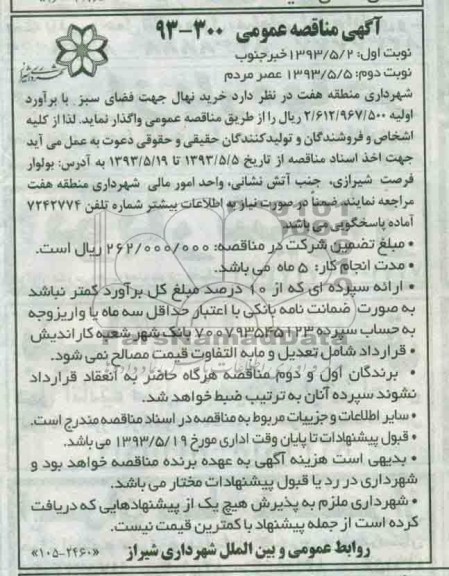 آگهی مناقصه عمومی ۳۰۰-۹۳
نوبت اول: ۱۳۹۳/۵/۲ خبرجنوب
نوبت دوم: ۱۳۹۳/۵/۵ عصر مردم
شهرداری منطقه هفت در نظر دارد خرید نهال جهت فضای سبز با برآورد
اولیه ۲/۶۱۲/۹۶۷/۵۰۰ ریال را از طریق مناقصه عمومی واگذار نماید. لذا از کلیه
اشخاص و فروشندگان و تولیدکنندگان حقیقی و حقوقی دعوت به عمل می آید
جهت اخذ اسناد مناقصه از تاریخ ۱۳۹۳/۵/۵ تا ۱۳۹۳/۵/۱۹ به آدرس: بولوار
فرصت شیرازی، جنب آتش نشانی، واحد امور مالی شهرداری منطقه هفت
مراجعه نمایند. ضمناً در صورت نیاز به اطلاعات بیشتر شماره تلفن ۷۲۴۲۷۷۴
آماده پاسخگویی می باشد.
• مبلغ تضمین شرکت در مناقصه: ۲۶۲/۰۰۰/۰۰۰ ریال است.
• مدت انجام کار: ۵ ماه می باشد.
• ارائه سپرده ای که از ۱۰ درصد مبلغ کل برآورد کمتر نباشد
به صورت ضمانت نامه بانکی با اعتبار حداقل سه ماه یا واریز وجه
به حساب سپرده ۷۰۰۷۹۳۵۴۵۱۲۳ بانک شهر شعبه کاراندیش
• قرارداد شامل تعدیل و مابه التفاوت قیمت مصالح نمی شود.
• برندگان اول و دوم مناقصه هرگاه حاضر به انعقاد قرارداد
نشوند سپرده آنان به ترتیب ضبط خواهد شد.
• سایر اطلاعات و جزییات مربوط به مناقصه در اسناد مناقصه مندرج است.
• قبول پیشنهادات تا پایان وقت اداری مورخ ۱۳۹۳/۵/۱۹ می باشد.
• بدیهی است هزینه آگهی به عهده برنده مناقصه خواهد بود و
شهرداری در رد یا قبول پیشنهادات مختار می باشد.
• شهرداری ملزم به پذیرش هیچ یک از پیشنهادهایی که دریافت
کرده است از جمله پیشنهاد با کمترین قیمت نیست.
روابط عمومی و بین الملل شهرداری شیراز «۱۰۵-۲۴۶۰»
ParsNamadData